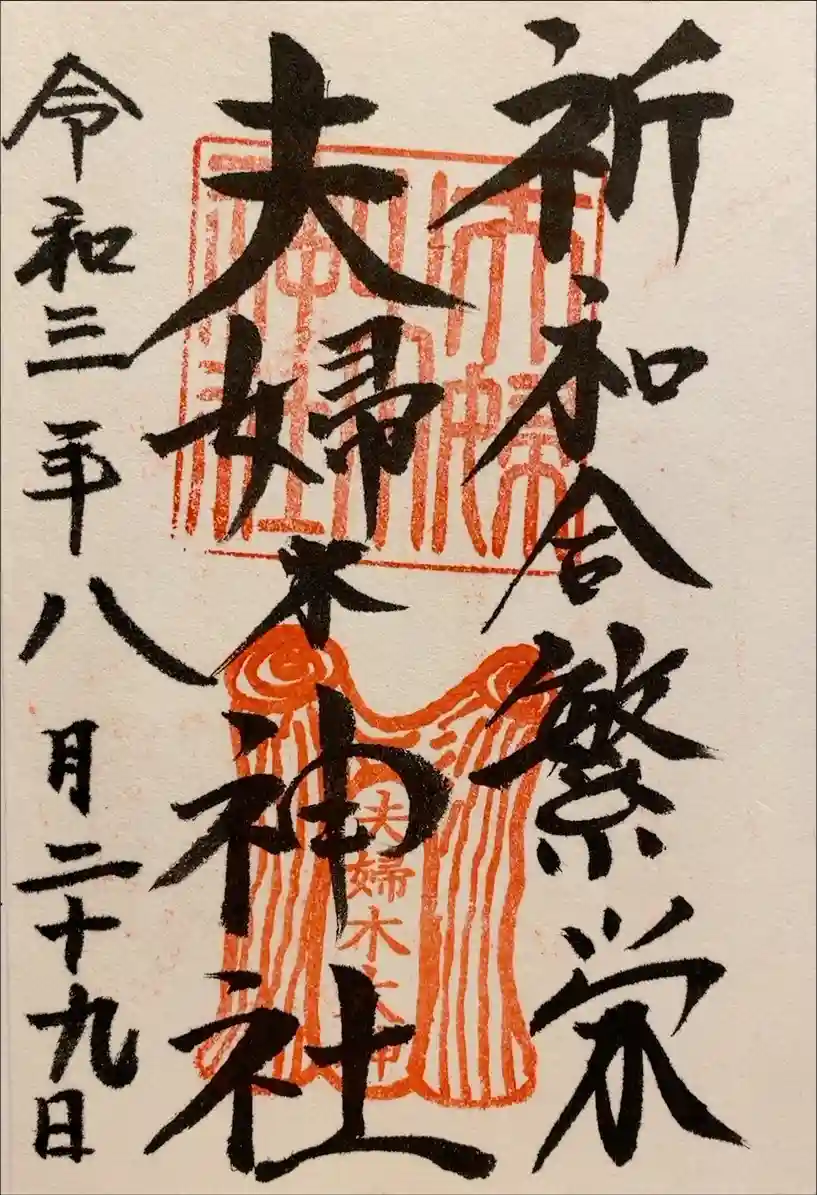 祈和合繁栄
夫婦木神社
令和三年八月二十九日
夫婦木神社
夫婦木大神